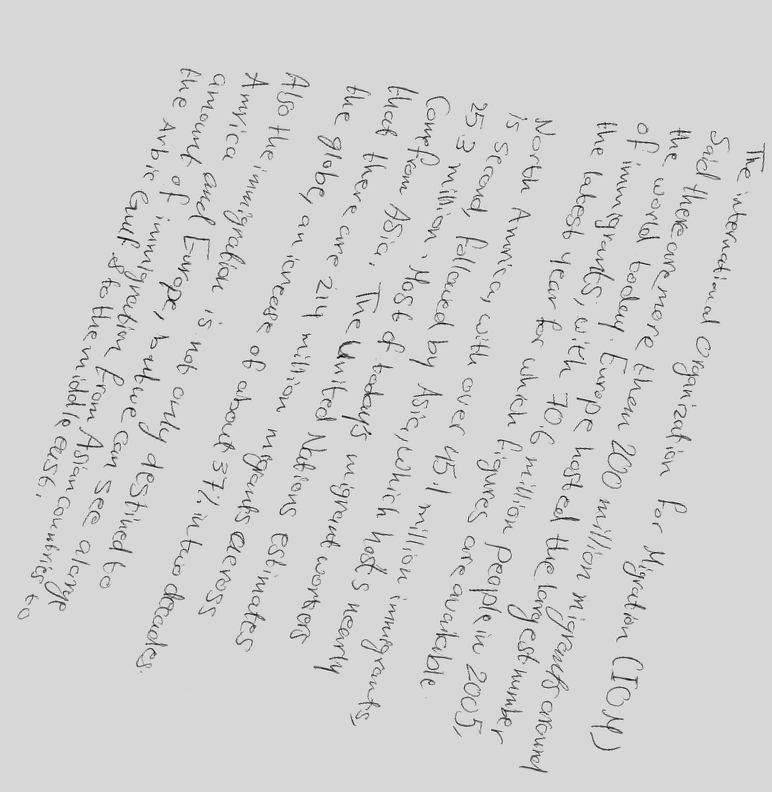 The international organization for Migration (IOM)
Said there are more them 200 million migrants around
the world today. Europe hosted the largest number
of immigrants, with 70.6 million people in 2005,
the latest year for which figures are available.
North Amrica, with over 45.1 million immigrants,
is second, followed by Asia, which hosts nearly
25.3 million. Most of today's migrant workers
Come from Asia. The United Nations estimates
that there are 214 million migrants across
the globe, an increase of about 37% in two decades.
Also the immigration is not only destined to
Amrica and Europe, but we can see a large
amount of immigration from Asian countries to
the Arbic Gulf & to the middle east.